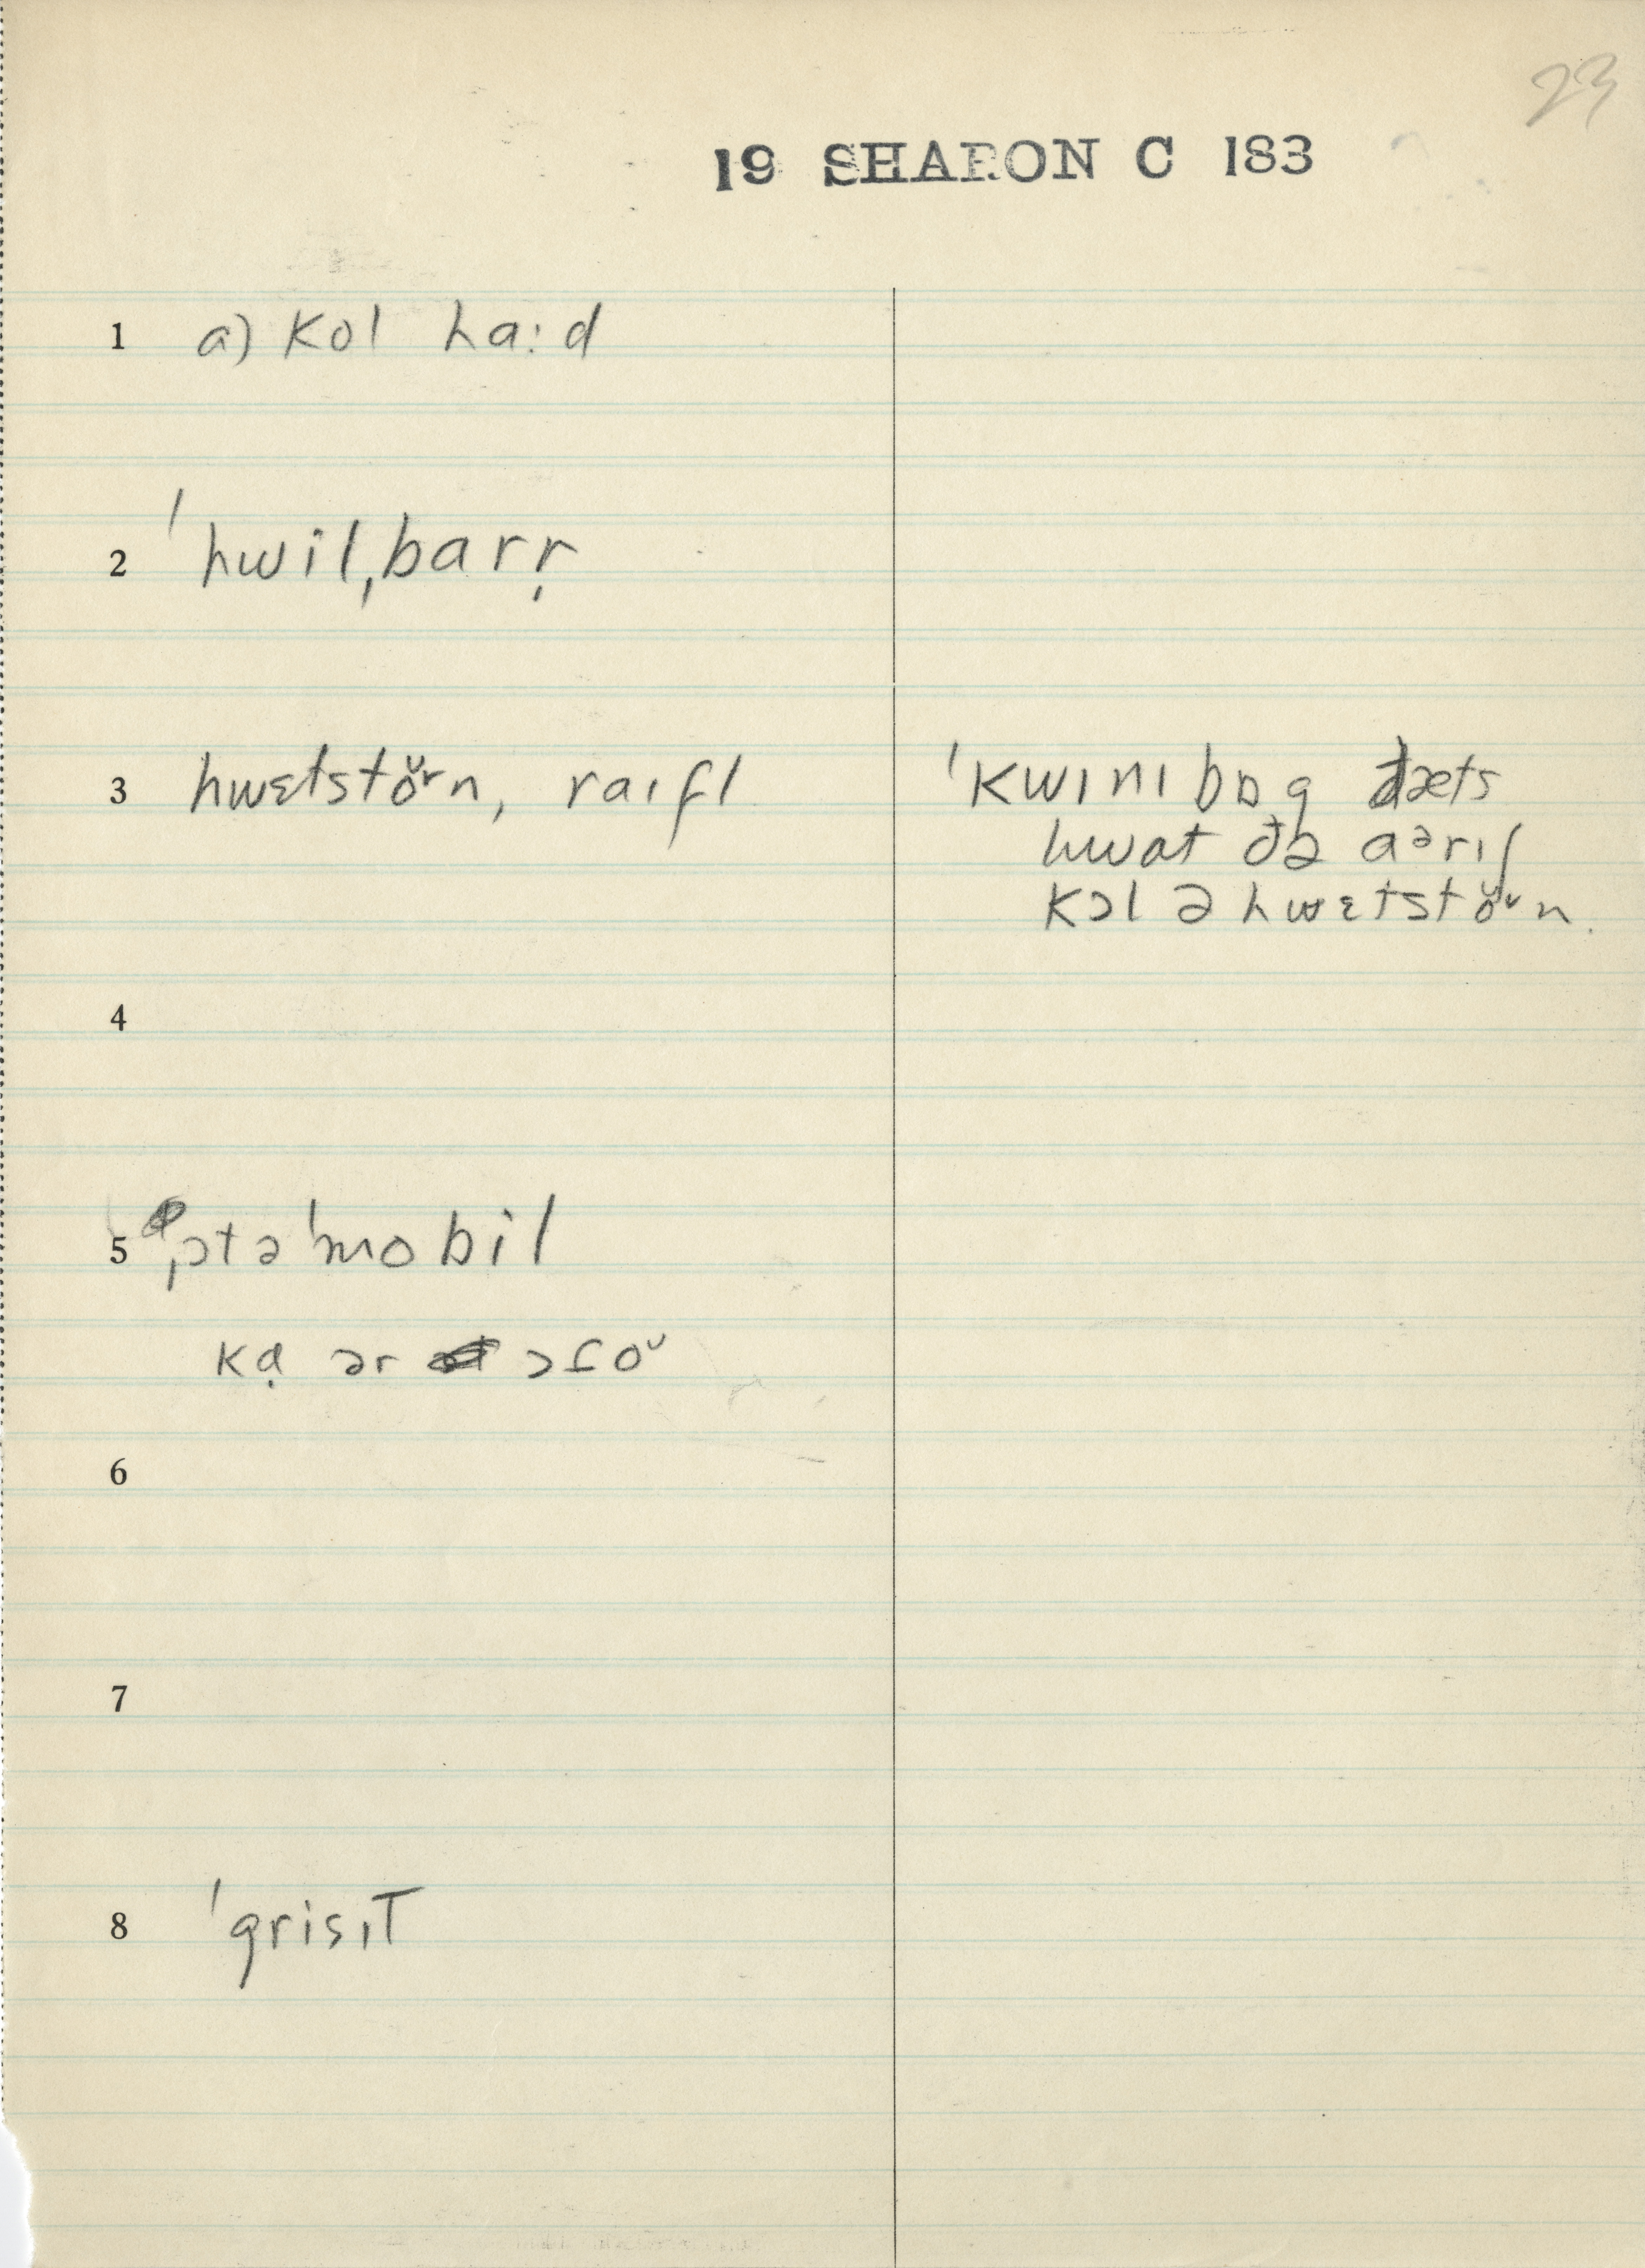 23
19 SHARON C 183
1 a) kol ha:d
2 ˈhwilˌbarṛ
3 hwɛtstŏ̤rn, raɪfl
ˈkwɪnɪbɒg ðæts
hwat ðə aᵊrɪʃ
kɔl ə hwɛtstŏ̤rn.
4
5 ˌɔtəˈmobil
kạ ər ɔfoᵕ
6
7
8 ˈgrisɪT